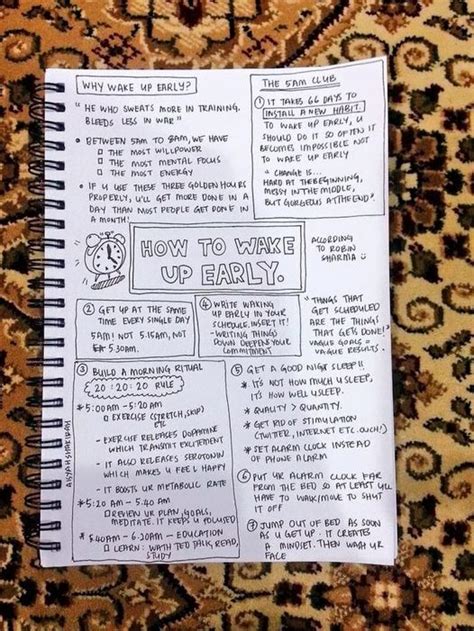 WHY WAKE UP EARLY?
"HE WHO SWEATS MORE IN TRAINING,
BLEEDS LESS IN WAR"
• BETWEEN 5AM TO 8AM, WE HAVE
THE MOST WILLPOWER
THE MOST MENTAL FOCUS
THE MOST ENERGY
• IF U USE THESE THREE GOLDEN HOURS
PROPERLY, U'LL GET MORE DONE IN A
DAY THAN MOST PEOPLE GET DONE IN
A MONTH!
THE 5AM CLUB
① IT TAKES 66 DAYS TO
INSTALL A NEW HABIT.
TO WAKE UP EARLY, U
SHOULD DO IT SO OFTEN IT
BECOMES IMPOSSIBLE NOT
TO WAKE UP EARLY
"CHANGE IS...
HARD AT THE BEGINNING,
MESSY IN THE MIDDLE,
BUT GORGEOUS AT THE END".
HOW TO WAKE
UP EARLY.
ACCORDING
TO ROBIN
SHARMA
② GET UP AT THE SAME
TIME EVERY SINGLE DAY
5AM! NOT 5.15AM, NOT
5.30AM.
④ WRITE WAKING
UP EARLY IN YOUR
SCHEDULE. INSERT IT!
- WRITING THINGS
DOWN DEEPENS YOUR
COMMITMENT
"THINGS THAT
GET SCHEDULED
ARE THE THINGS
THAT GETS DONE!"
VAGUE GOALS =
VAGUE RESULTS.
③ BUILD A MORNING RITUAL
20:20:20 RULE
* 5:00AM - 5:20AM
EXERCISE (STRETCH, SKIP)
ETC
- EXERCISE RELEASES DOPAMINE
WHICH TRANSMIT EXCITEMENT
- IT ALSO RELEASES SEROTONIN
WHICH MAKES U FEEL HAPPY
- IT BOOSTS UR METABOLIC RATE
* 5:20 AM - 5.40 AM
REVIEW UR PLAN, GOALS,
MEDITATE. IT KEEPS U FOCUSED
* 5.40AM - 6.00AM - EDUCATION
LEARN: WATH TED TALK, READ,
STUDY
⑤ GET A GOOD NIGHT SLEEP!!
* IT'S NOT HOW MUCH U SLEEP,
IT'S HOW WELL U SLEEP.
* QUALITY > QUANTITY.
* GET RID OF STIMULATION
(TWITTER, INTERNET ETC. OUCH!)
* SET ALARM CLOCK INSTEAD
OF PHONE ALARM
⑥ PUT UR ALARM CLOCK FAR
FROM THE BED SO AT LEAST U'LL
HAVE TO WALK/MOVE TO SHUT
IT OFF
⑦ JUMP OUT OF BED AS SOON
AS U GET UP. IT CREATES
A MINDSET. THEN WASH UR
FACE